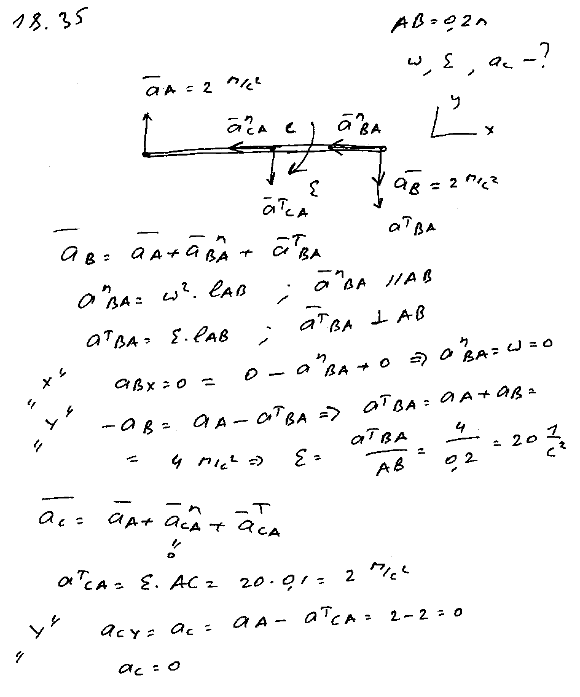 18.35
AB = 0,2 м
ω, ε, ac - ?
āA = 2 м/с²
āⁿCA C āⁿBA
y
x
ε
āᵀCA
āB = 2 м/с²
aᵀBA
āB = āA + āⁿBA + āᵀBA
aⁿBA = ω² · lAB ; āⁿBA // AB
aᵀBA = ε · lAB ; āᵀBA ⊥ AB
"x" aBx = 0 = 0 - aⁿBA + 0 ⇒ aⁿBA = ω = 0
"y" -aB = aA - aᵀBA ⇒ aᵀBA = aA + aB =
= 4 м/с² ⇒ ε = aᵀBA / AB = 4 / 0,2 = 20 1/с²
āc = āA + āⁿCA + āᵀCA
"
0
aᵀCA = ε · AC = 20 · 0,1 = 2 м/с²
"y" acy = ac = aA - aᵀCA = 2 - 2 = 0
ac = 0